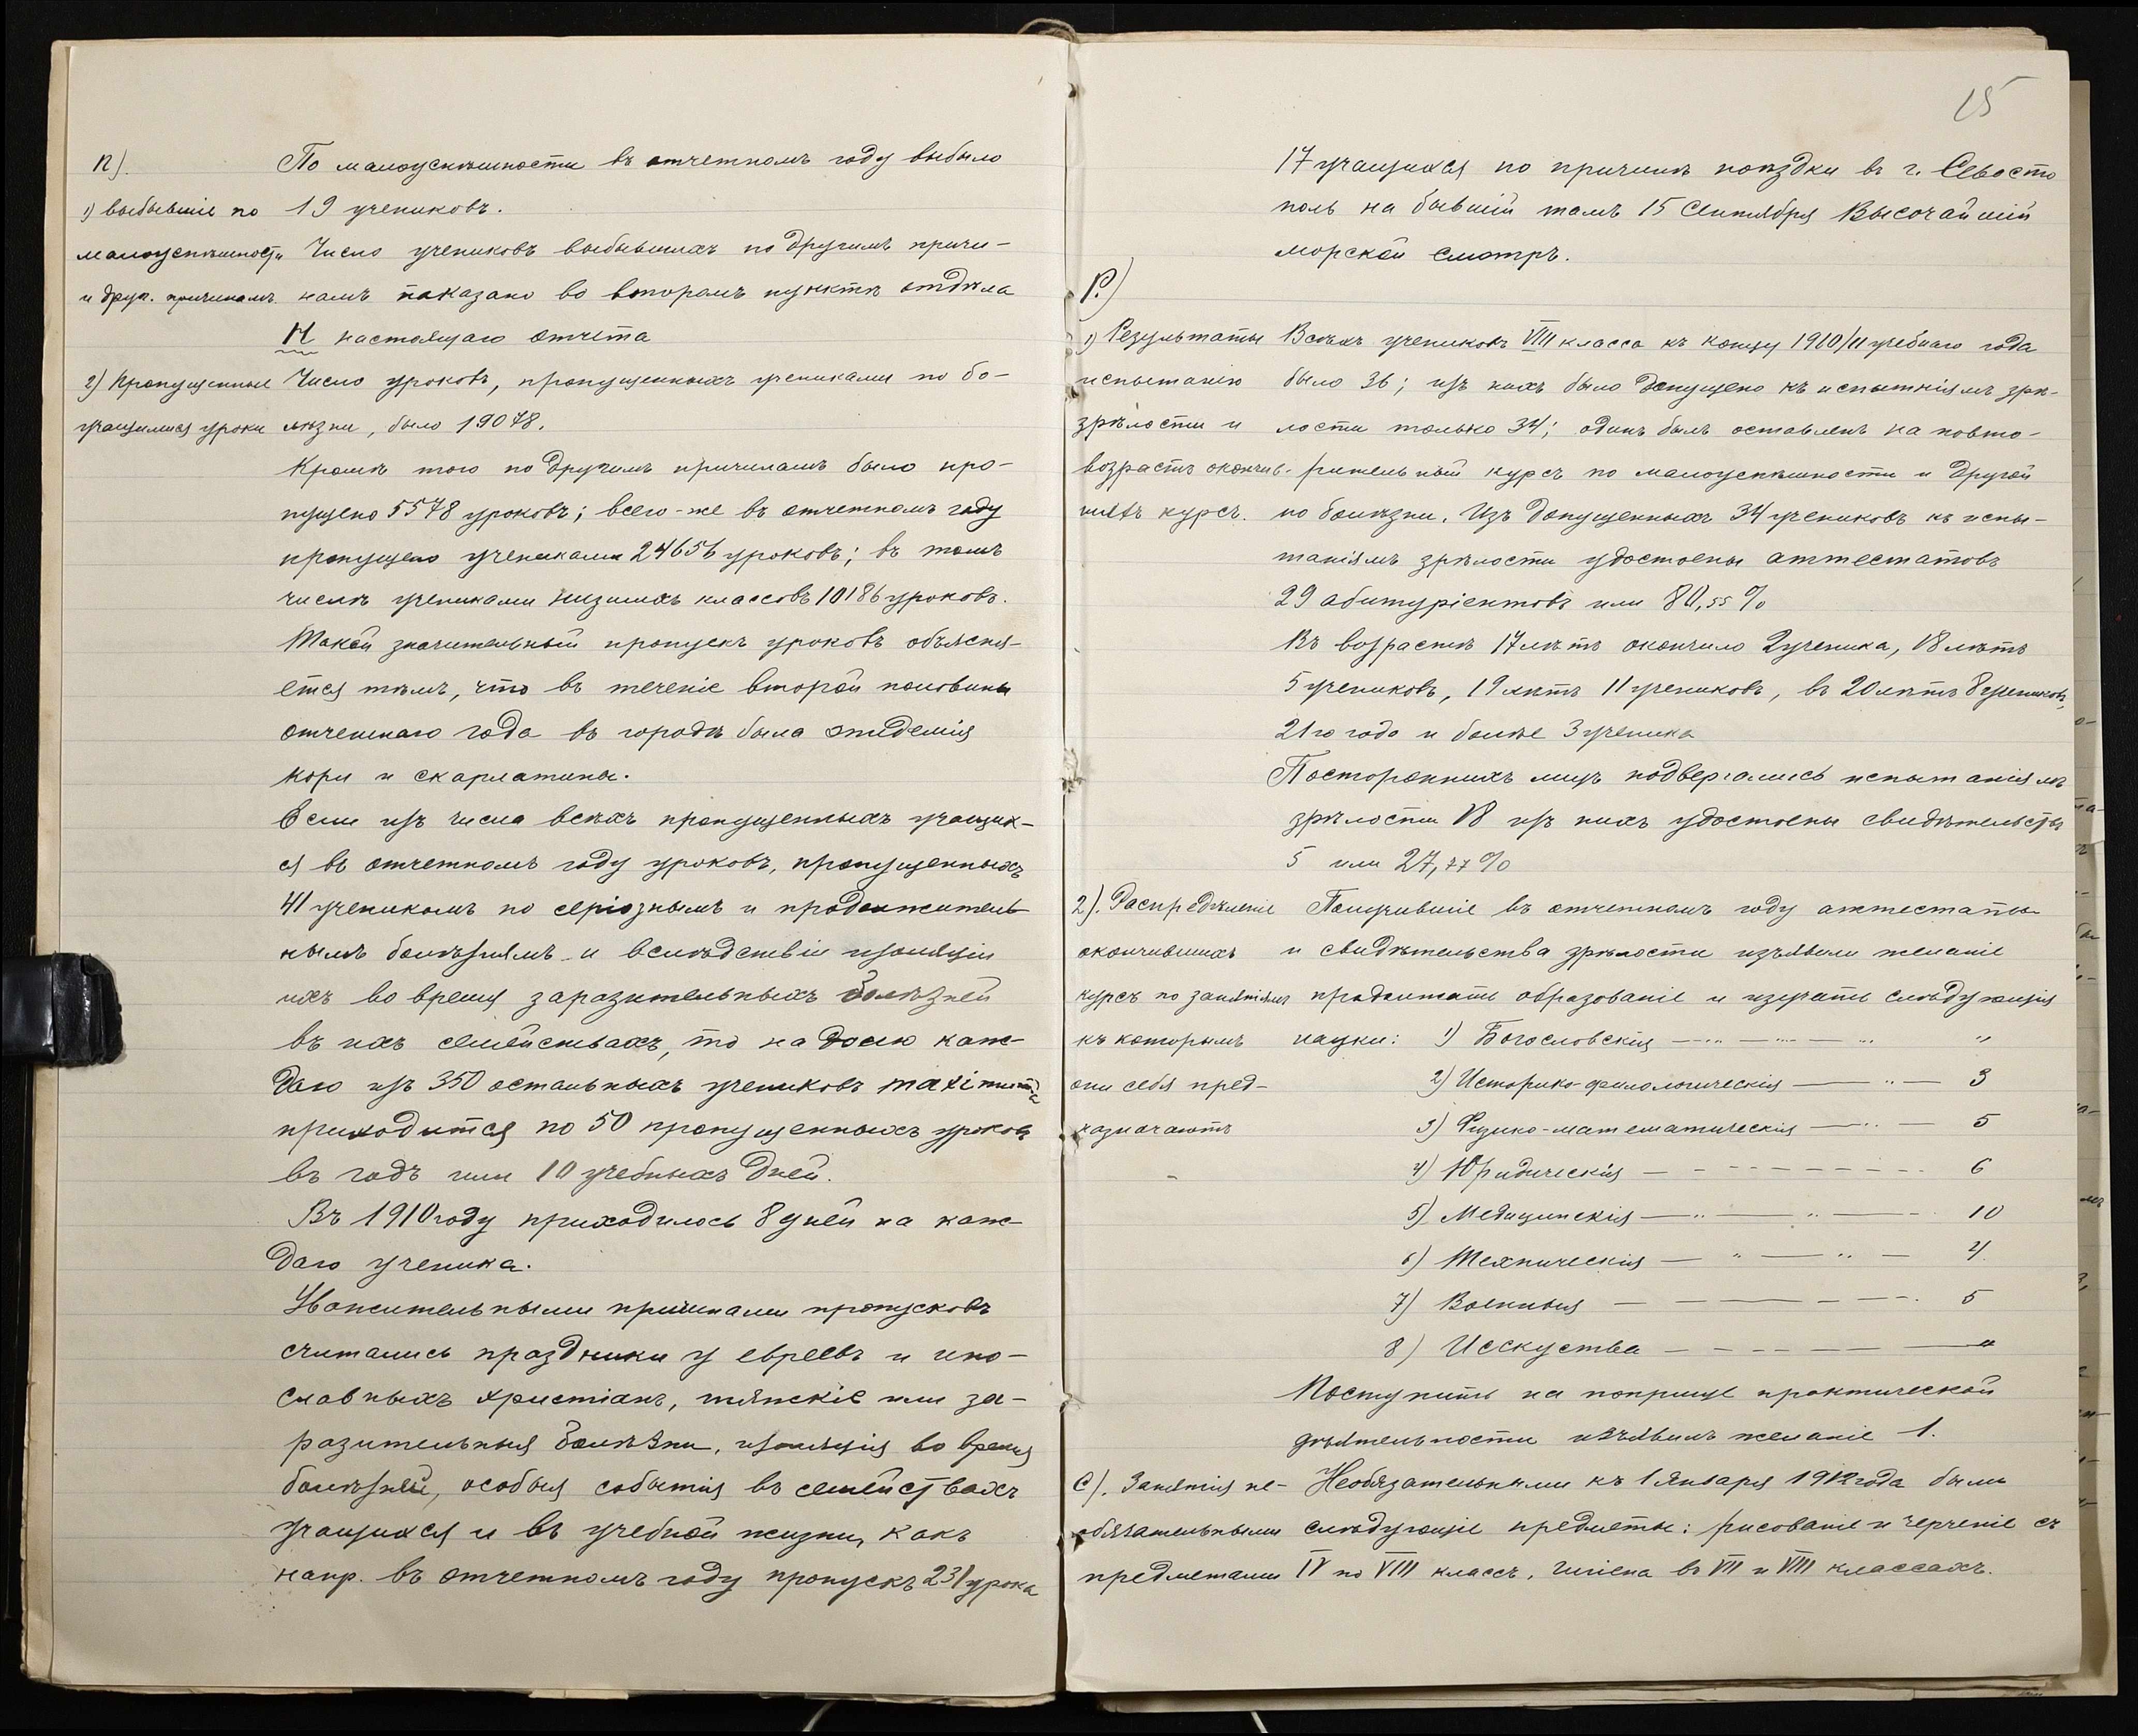 П).
1) выбывшіе по
малоуспѣшности
и друг. причинамъ
По малоуспѣшности въ отчетномъ году выбыло
19 учениковъ.
Число учениковъ выбывшихъ по другимъ причи-
намъ показано во второмъ пунктѣ отдѣла
М настоящаго отчета
2) Пропущенные
учащимися уроки
Число уроковъ, пропущенныхъ учениками по бо-
лѣзни, было 19078.
Кромѣ того по другимъ причинамъ было про-
пущено 5578 уроковъ; всего-же въ отчетномъ году
пропущено учениками 24656 уроковъ; въ томъ
числѣ учениками низшихъ классовъ 10186 уроковъ.
Такой значительный пропускъ уроковъ объясня-
ется тѣмъ, что въ теченіе второй половины
отчетнаго года въ городѣ была эпидемія
кори и скарлатины.
Если изъ числа всѣхъ пропущенныхъ учащих-
ся въ отчетномъ году уроковъ, пропущенныхъ
41 ученикомъ по серіознымъ и продолжитель
нымъ болѣзнямъ и вслѣдствіи изоляціи
ихъ во время заразительныхъ болѣзней
въ ихъ семействахъ, то на долю каж-
даго изъ 350 остальныхъ учениковъ maximum
приходится по 50 пропущенныхъ уроковъ
въ годъ или 10 учебныхъ дней.
Въ 1910 году приходилось 8 дней на каж-
даго ученика.
Уважительными причинами пропусковъ
считались праздники у евреевъ и ино-
славныхъ христіанъ, тяжскіе или за-
разительныя болѣзни, изоляція во время
болѣзней, особыя событія въ семействахъ
учащихся и въ учебной жизни, какъ
напр. въ отчетномъ году пропускъ 231 урока
15
17 учащихся по причинѣ поѣздки въ г. Севасто
поль на бывшій тамъ 15 Сентября Высочайшій
морской смотръ.
Р.)
1) Результаты
испытанію
зрѣлости и
возрастъ окончив-
шихъ курсъ.
Всѣхъ учениковъ VIII класса къ концу 1910/11 учебнаго года
было 36; изъ нихъ было допущено къ испытніямъ зрѣ-
лости только 34; одинъ былъ оставленъ на повто-
рительный курсъ по малоуспѣшности и другой
по болѣзни. Изъ допущенныхъ 34 учениковъ къ испы-
таніямъ зрѣлости удостоены аттестатовъ
29 абитуріентовъ или 80,55 %
Въ возрастѣ 17 лѣтъ окончило 2 ученика, 18 лѣтъ
5 учениковъ, 19 лѣтъ 11 учениковъ, въ 20 лѣтъ 8 учениковъ,
21 го года и болѣе 3 ученика
Постороннихъ лицъ подвергались испытаніямъ
зрѣлости 18 изъ нихъ удостоены свидѣтельства
5 или 27,77 %
2). Распредѣленіе
окончившихъ
курсъ по занятіямъ
къ которымъ
они себя пред-
назначаютъ
Получившіе въ отчетномъ году аттестаты
и свидѣтельства зрѣлости изъявили желаніе
продолжать образованіе и изучать слѣдующія
науки: 1) Богословскія — „
2) Историко-филологическія — 3
3) Физико-математическія — 5
4) Юридическія — 6
5) Медицинскія — 10
6) Техническія — 4
7) Военныя — 5
8) Исскуства — „
Поступить на поприще практической
дѣятельности изъявилъ желаніе 1.
С). Занятія не-
обязательными
предметами
Необязательными къ 1 Января 1912 года были
слѣдующіе предметы: рисованіе и черченіе съ
IV по VIII классъ, гигіена въ VII и VIII классахъ.